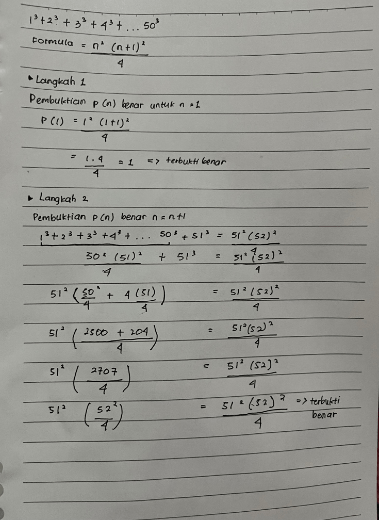 1³ + 2³ + 3³ + 4³ + ... 50³
Formula = n² (n+1)² / 4
▸ Langkah 1
Pembuktian P(n) benar untuk n = 1
P(1) = 1² (1+1)² / 4
= 1.4 / 4 = 1 => terbukti benar
▸ Langkah 2
Pembuktian P(n) benar n = n+1
1³ + 2³ + 3³ + 4³ + ... 50³ + 51³ = 51² (52)² / 4
50² (51)² / 4 + 51³ = 51² (52)² / 4
51² (50² / 4 + 4 (51) / 4) = 51² (52)² / 4
51² (2500 + 204 / 4) = 51² (52)² / 4
51² (2707 / 4) = 51² (52)² / 4
51² (52² / 4) = 51² (52)² / 4 => terbukti benar